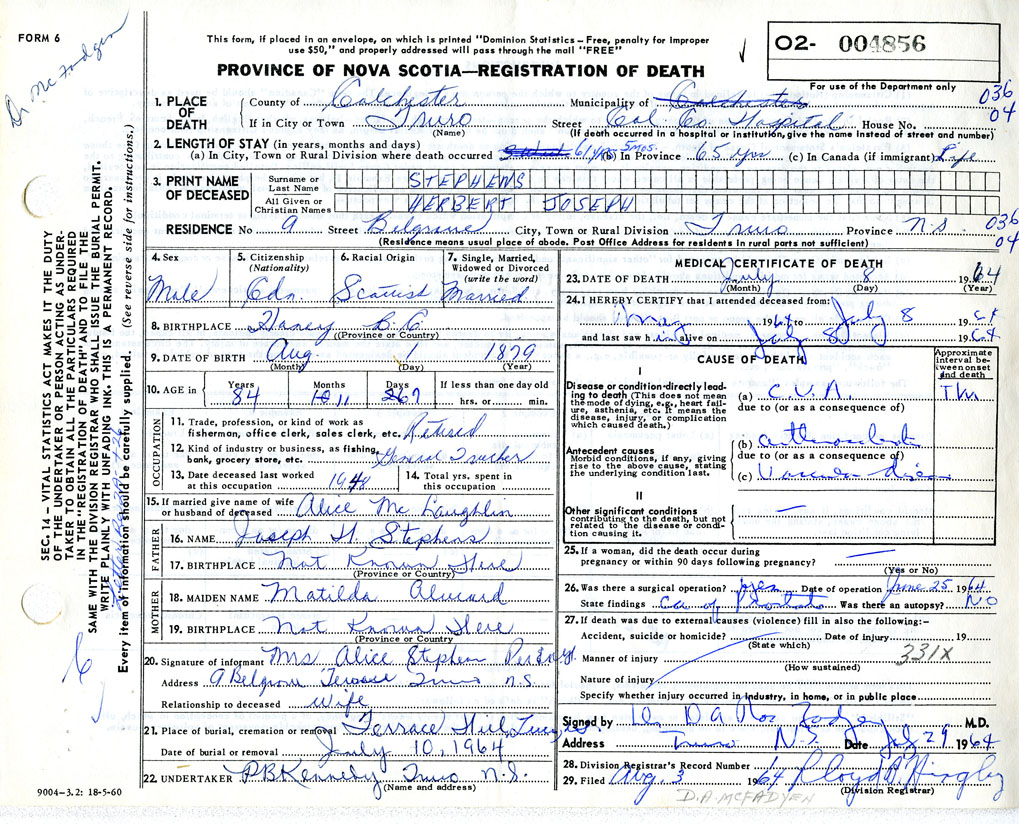 FORM 6
Dr McFadyen
This form, if placed in an envelope, on which is printed "Dominion Statistics – Free, penalty for improper
use $50," and properly addressed will pass through the mail "FREE"
PROVINCE OF NOVA SCOTIA—REGISTRATION OF DEATH
O2- 004856
For use of the Department only
036
04
1. PLACE OF DEATH
County of Colchester Municipality of Colchester
If in City or Town Truro Street Col. Co. Hospital House No.
(Name) (If death occurred in a hospital or institution, give the name instead of street and number)
2. LENGTH OF STAY (in years, months and days)
(a) In City, Town or Rural Division where death occurred 61 yrs 5 mos. (b) In Province 65 yrs (c) In Canada (if immigrant) Life
3. PRINT NAME OF DECEASED
Surname or Last Name STEPHENS
All Given or Christian Names HERBERT JOSEPH
RESIDENCE No 9 Street Belgrave City, Town or Rural Division Truro Province N.S. 036
04
(Residence means usual place of abode. Post Office Address for residents in rural parts not sufficient)
4. Sex Male
5. Citizenship (Nationality) Cdn.
6. Racial Origin Scottish
7. Single, Married, Widowed or Divorced (write the word) Married
8. BIRTHPLACE Haney B.C.
(Province or Country)
9. DATE OF BIRTH Aug. 1 1879
(Month) (Day) (Year)
10. AGE in Years 84 Months 11 Days 7 If less than one day old
hrs. or min.
OCCUPATION
11. Trade, profession, or kind of work as
fishermon, office clerk, sales clerk, etc. Retired
12. Kind of industry or business, as fishing,
bank, grocery store, etc. General Trucker
13. Date deceased last worked
at this occupation 1948
14. Total yrs. spent in
this occupation
15. If married give name of wife
or husband of deceased Alice McLaughlin
FATHER
16. NAME Joseph H. Stephens
17. BIRTHPLACE Not Known Here
(Province or Country)
MOTHER
18. MAIDEN NAME Matilda
19. BIRTHPLACE Not Known Here
(Province or Country
20. Signature of informant Mrs Alice Stephen
Address 9 Belgrave Terrace Truro N.S.
Relationship to deceased wife
21. Place of burial, cremation or removal Terrace Hill, Truro, N.S.
Date of burial or removal July 10, 1964
22. UNDERTAKER P B Kennedy Truro N.S.
(Name and address)
9004—3.2: 18-5-60
MEDICAL CERTIFICATE OF DEATH
23. DATE OF DEATH July 8 1964
(Month) (Day) (Year)
24. I HEREBY CERTIFY that I attended deceased from:
May 1964 to July 8 1964
and last saw him alive on July 8 1964
CAUSE OF DEATH
Approximate interval between onset and death
I
Disease or condition directly leading to death (This does not mean
the mode of dying, e.g., heart failure, asthenia, etc. It means the
disease, injury, or complication
which caused death.)
(a) C.V.A.
due to (or as a consequence of)
Antecedent causes
Morbid conditions, if any, giving
rise to the above cause, stating
the underlying condition last.
(b)
due to (or as a consequence of)
(c) Vascular disease
II
Other significant conditions
contributing to the death, but not
related to the disease or condition causing it.
25. If a woman, did the death occur during
pregnancy or within 90 days following pregnancy?
(Yes or No)
26. Was there a surgical operation? yes Date of operation June 25 1964
State findings ca of Prostate Was there an autopsy? NO
27. If death was due to external causes (violence) fill in also the following:–
Accident, suicide or homicide? Date of injury 19
(State which)
Manner of injury 331X
(How sustained)
Nature of injury
Specify whether injury occurred in industry, in home, or in public place
Signed by Dr D A McFadyen M.D.
Address Truro N.S. Date July 29 1964
28. Division Registrar's Record Number
29. Filed Aug. 3 1964 Lloyd Hingley
(Division Registrar)
D.A. MCFADYEN
SEC. 14 – VITAL STATISTICS ACT MAKES IT THE DUTY
OF THE UNDERTAKER OR PERSON ACTING AS UNDER-
TAKER TO OBTAIN ALL THE PARTICULARS REQUIRED
IN THE "REGISTRATION OF DEATH" AND TO FILE THE
SAME WITH THE DIVISION REGISTRAR WHO SHALL ISSUE THE BURIAL PERMIT.
WRITE PLAINLY WITH UNFADING INK. THIS IS A PERMANENT RECORD.
Every item of information should be carefully supplied. (See reverse side for instructions.)